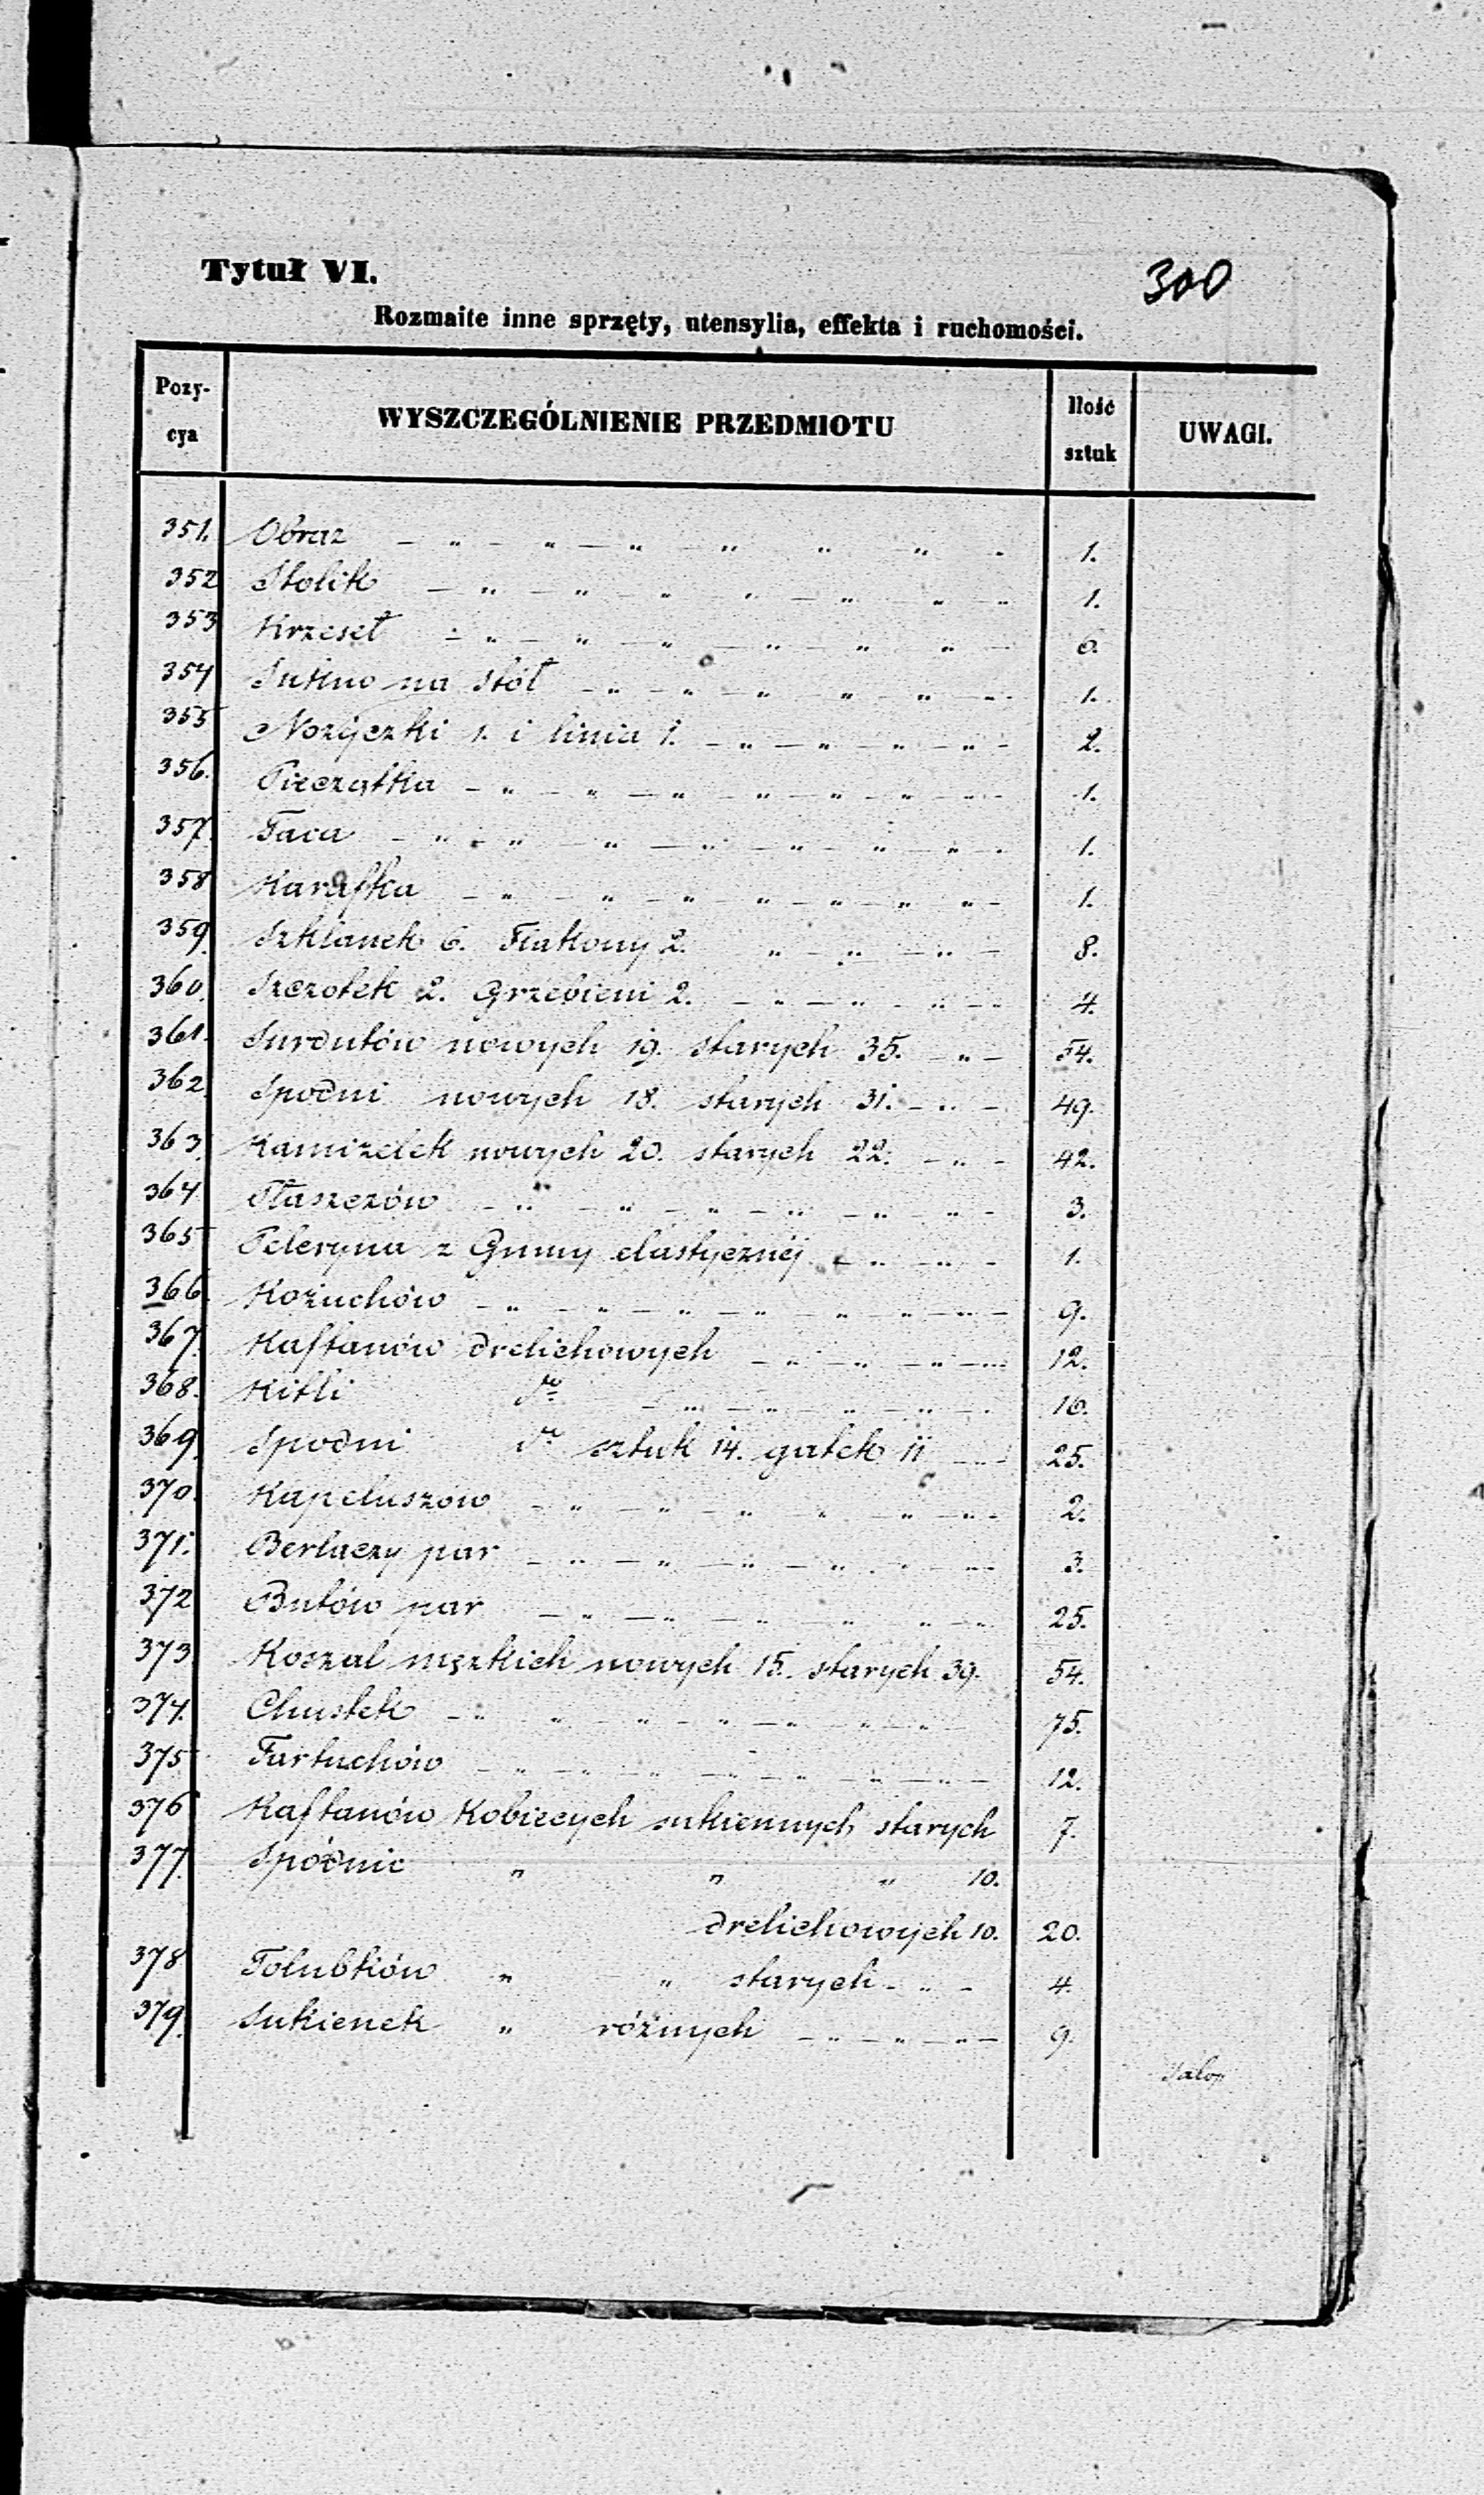 Tytuł VI.
300
Rozmaite inne sprzęty, utensylia, effekta i ruchomości.
Pozy-cya WYSZCZEGÓLNIENIE PRZEDMIOTU Ilość sztuk UWAGI.
351. Obraz — " — " — " — " " " 1.
352 Stolik — " — " — " — " — " " 1.
353 Krzeseł — " — " — " — " — " " — 6.
354 Sukno na stół — " — " — " — " — " — 1.
355 Nożyczki 1. i linia 1. — " — " — " — " — 2.
356. Pieczątka — " — " — " — " — " — " — 1.
357. Taca — " — " — " — " — " — " — " 1.
358 Karafka — " — " — " — " — " — " — " — 1.
359. Szklanek 6. Flakony 2. " — " — " — 8.
360. Szczotek 2. Grzebieni 2. — " — " — " — 4.
361. Surdutów nowych 19. starych 35. — " — 54.
362. Spodni nowych 18. starych 31. — " — 49.
363. Kamizelek nowych 20. starych 22. — " — 42.
364 Płaszczów — " — " — " — " — " — " — 3.
365 Peleryna z Gumy elastycznéj — " — " — 1.
366. Kożuchów — " — " — " — " — " — " — 9.
367. Kaftanów drelichowych — " — " — " — 12.
368. Kitli do — " — " — " — " — 16.
369. Spodni do sztuk 14. gatek 11 — 25.
370. Kapeluszów — " — " — " — " — " — 2.
371. Berlaczy par — " — " — " — " — 3.
372 Butów par — " — " — " — " — " — 25.
373 Koszul męzkich nowych 15. starych 39. 54.
374. Chustek — " — " — " — " — " — " — " 75.
375 Fartuchów — " — " — " — " — " — " — 12.
376 Kaftanów Kobiecych sukiennych starych 7.
377. Spódnic " " " 10.
drelichowych 10. 20.
378 Tołubków " " starych — " — 4.
379. Sukienek " różnych — " — " — " — 9.
Salop